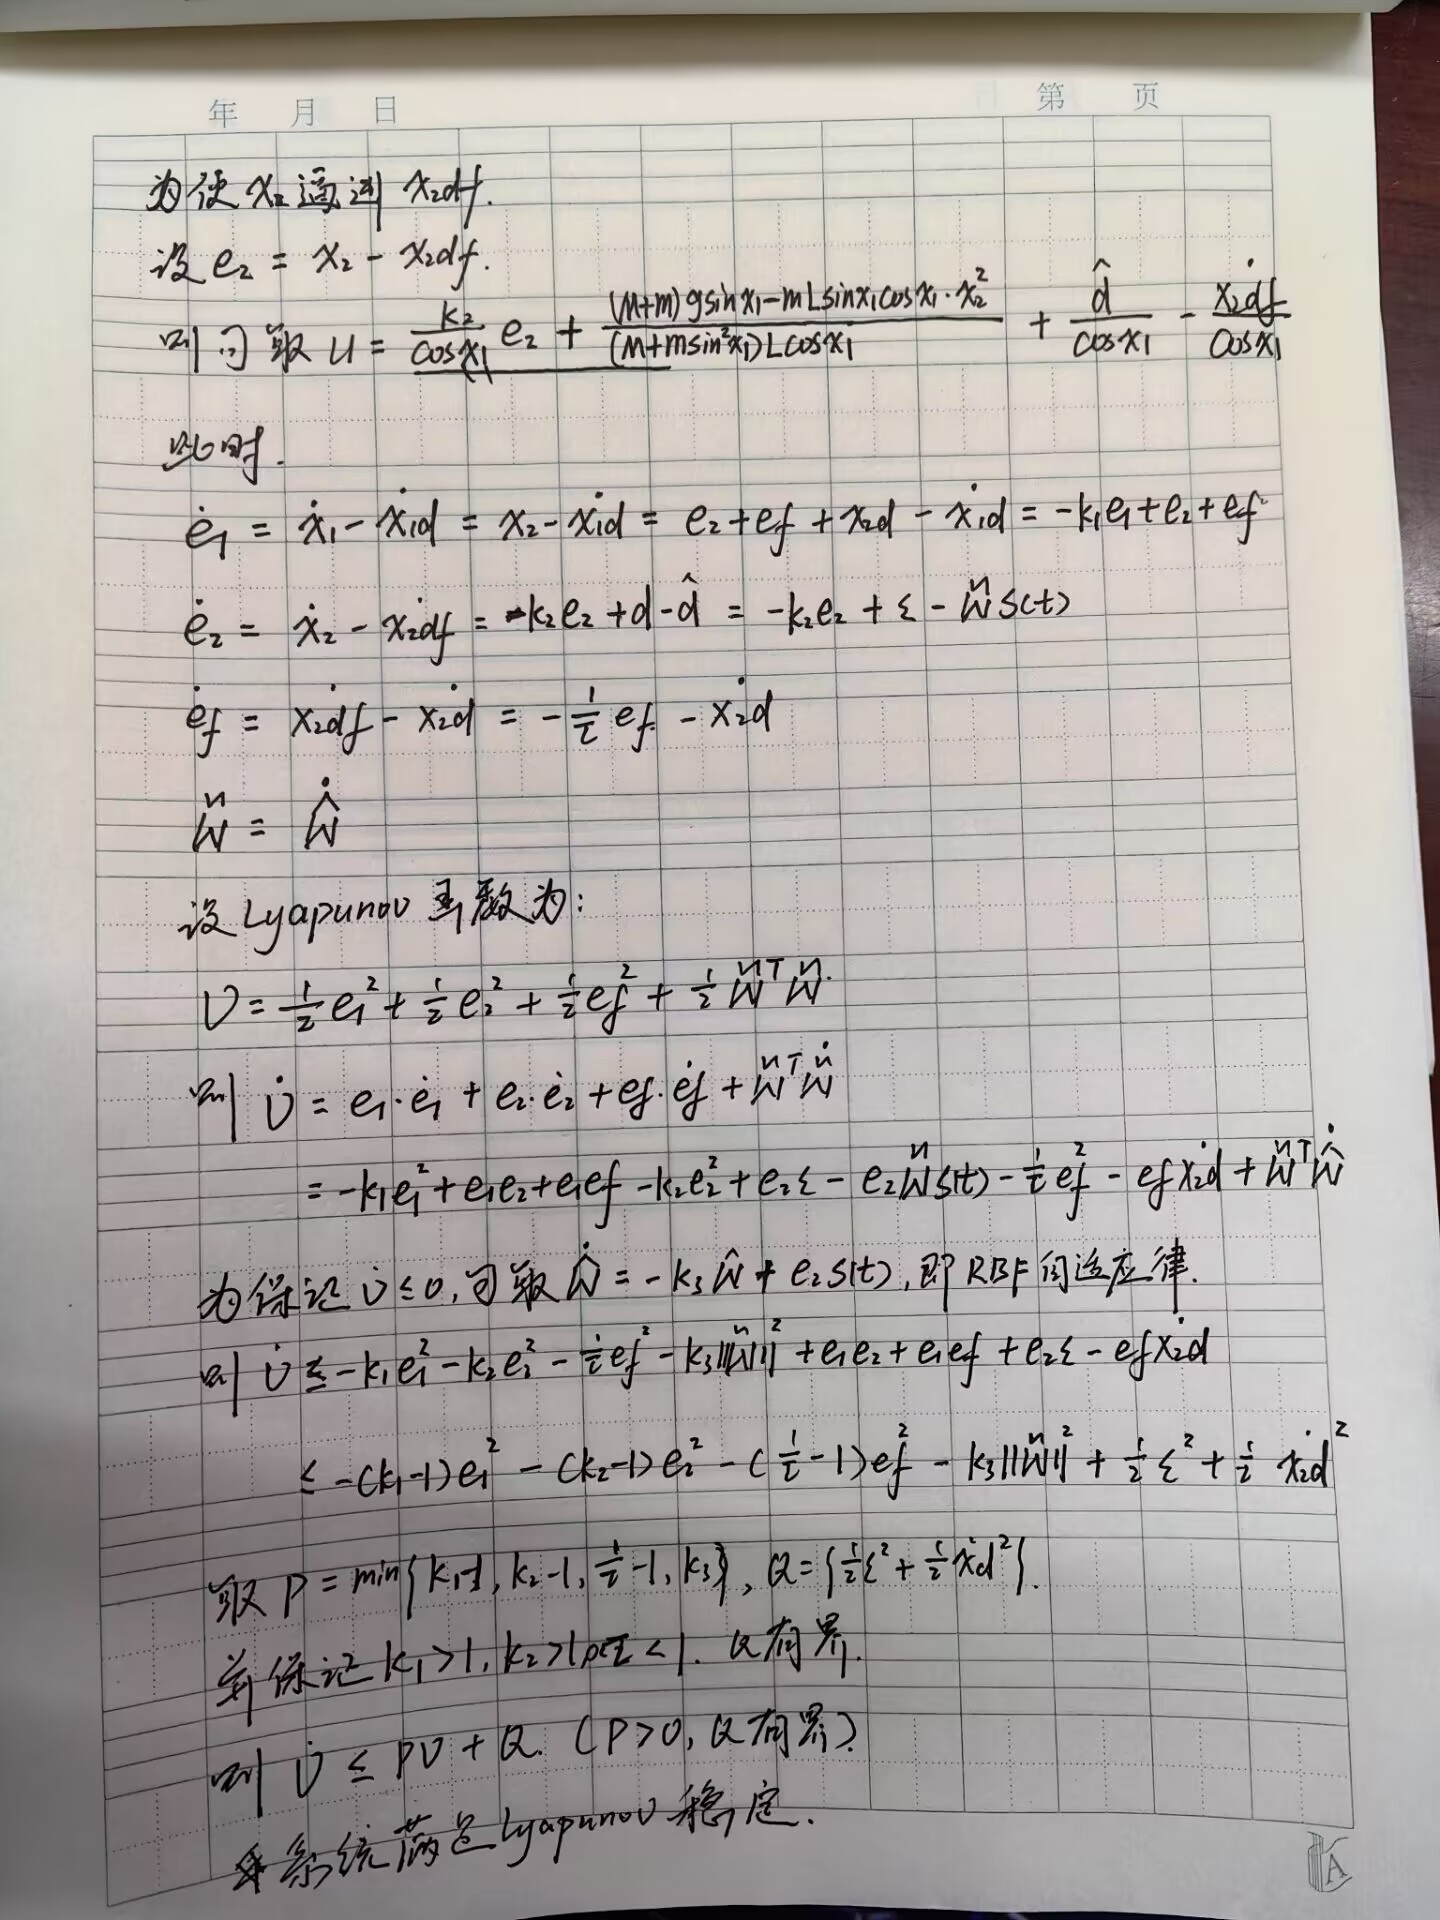 年 月 日 第 页
为使 x₂ 逼近 x₂df.
设 e₂ = x₂ - x₂df.
则可取 u = \frac{k₂}{cosx₁} e₂ + \frac{(M+m)gsinx₁-mLsinx₁cosx₁·x₂²}{(M+msin²x₁)Lcosx₁} + \frac{\hat{d}}{cosx₁} - \frac{\dot{x₂df}}{cosx₁}
此时.
\dot{e}₁ = \dot{x}₁ - \dot{x₁d} = x₂ - \dot{x₁d} = e₂ + ef + x₂d - \dot{x₁d} = -k₁e₁ + e₂ + ef
\dot{e}₂ = \dot{x}₂ - \dot{x₂df} = -k₂e₂ + d - \hat{d} = -k₂e₂ + ε - \tilde{W}S(t)
\dot{e}f = \dot{x₂df} - \dot{x₂d} = -\frac{1}{τ} ef - \dot{x₂d}
\tilde{W} = \dot{\hat{W}}
设 Lyapunov 函数为:
V = ½e₁² + ½e₂² + ½ef² + ½\tilde{W}ᵀ\tilde{W}.
则 \dot{V} = e₁·\dot{e}₁ + e₂·\dot{e}₂ + ef·\dot{e}f + \tilde{W}ᵀ\dot{\tilde{W}}
= -k₁e₁² + e₁e₂ + e₁ef - k₂e₂² + e₂ε - e₂\tilde{W}S(t) - \frac{1}{τ}ef² - ef\dot{x₂d} + \tilde{W}ᵀ\dot{\hat{W}}
为保证 \dot{V} ≤ 0, 可取 \dot{\hat{W}} = -k₃\hat{W} + e₂S(t), 即 RBF 自适应律.
则 \dot{V} ≤ -k₁e₁² - k₂e₂² - \frac{1}{τ}ef² - k₃||\tilde{W}||² + e₁e₂ + e₁ef + e₂ε - ef\dot{x₂d}
≤ -(k₁-1)e₁² - (k₂-1)e₂² - (\frac{1}{τ}-1)ef² - k₃||\tilde{W}||² + ½ε² + ½\dot{x₂d}²
取 P = min{k₁-1, k₂-1, \frac{1}{τ}-1, k₃}, Q = {½ε² + ½\dot{x₂d}²}.
并保证 k₁>1, k₂>1, 0<τ<1. Q有界.
则 \dot{V} ≤ PV + Q. (P>0, Q有界).
系统满足 Lyapunov 稳定.